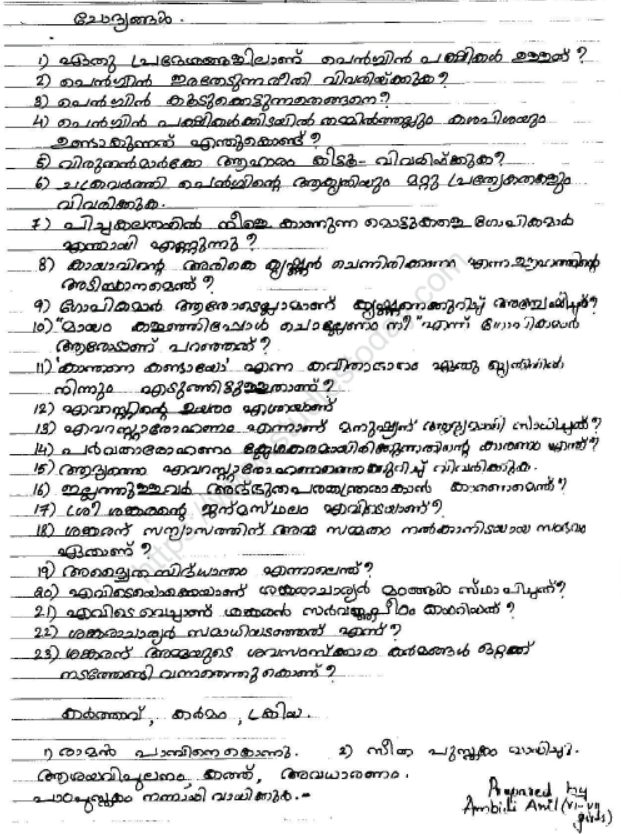 ചോദ്യങ്ങൾ.
1) ഏതു പ്രദേശങ്ങളിലാണ് പെൻഗ്വിൻ പക്ഷികൾ ഉള്ളത്?
2) പെൻഗ്വിൻ ഇരതേടുന്ന രീതി വിവരിയ്ക്കുക?
3) പെൻഗ്വിൻ കൂടുകെട്ടുന്നതെങ്ങനെ?
4) പെൻഗ്വിൻ പക്ഷികൾക്കിടയിൽ തമ്മിൽത്തല്ലും കശപിശയും
ഉണ്ടാകുന്നത് എന്തുകൊണ്ട്?
5) വിരുതൻമാർക്കേ ആഹാരം കിട്ടൂ - വിവരിയ്ക്കുക?
6) ചക്രവർത്തി പെൻഗ്വിന്റെ ആകൃതിയും മറ്റു പ്രത്യേകതകളും
വിവരിക്കുക.
7) പിച്ചകലതകളിൽ നീളെ കാണുന്ന മൊട്ടുകളെ ഗോപികമാർ
എന്തായി എണ്ണുന്നു?
8) കായാവിന്റെ അരികെ കൃഷ്ണൻ ചെന്നിരിക്കണം എന്ന ഊഹത്തിന്റെ
അടിസ്ഥാനമെന്ത്?
9) ഗോപികമാർ ആരോടെല്ലാമാണ് കൃഷ്ണനെക്കുറിച്ച് അന്വേഷിച്ചത്?
10) "മായം കളഞ്ഞിപ്പോൾ ചൊല്ലേണം നീ" എന്ന് ഗോപികമാർ
ആരോടാണ് പറഞ്ഞത്?
11) 'കാന്തനെ കണ്ടായോ' എന്ന കവിതാഭാഗം ഏതു കൃതിയിൽ
നിന്നും എടുത്തിട്ടുള്ളതാണ്?
12) എവറസ്റ്റിന്റെ ഉയരം എത്രയാണ്
13) എവറസ്റ്റാരോഹണം എന്നാണ് മനുഷ്യന് ആദ്യമായി സാധിച്ചത്?
14) പർവതാരോഹണം ക്ലേശകരമായിരിക്കുന്നതിന്റെ കാരണം എന്ത്?
15) ആദ്യത്തെ എവറസ്റ്റാരോഹണത്തെക്കുറിച്ച് വിവരിക്കുക.
16) ഇല്ലത്തുള്ളവർ അത്ഭുതപരതന്ത്രരാകാൻ കാരണമെന്ത്?
17) ശ്രീ ശങ്കരന്റെ ജന്മസ്ഥലം എവിടെയാണ്?
18) ശങ്കരന് സന്ന്യാസത്തിന് അമ്മ സമ്മതം നൽകാനിടയായ സന്ദർഭം
ഏതാണ്?
19) അദ്വൈതസിദ്ധാന്തം എന്നാലെന്ത്?
20) എവിടെയൊക്കെയാണ് ശങ്കരാചാര്യർ മഠങ്ങൾ സ്ഥാപിച്ചത്?
21) എവിടെ വെച്ചാണ് ശങ്കരൻ സർവജ്ഞപീഠം കയറിയത്?
22) ശങ്കരാചാര്യർ സമാധിയടഞ്ഞത് എന്ന്?
23) ശങ്കരന് അമ്മയുടെ ശവസംസ്ക്കാര കർമങ്ങൾ ഒറ്റക്ക്
നടത്തേണ്ടി വന്നതെന്തുകൊണ്ട്?
കർത്താവ്, കർമം, ക്രിയ.
1) രാമൻ പാമ്പിനെ കൊന്നു. 2) സീത പുസ്തകം വായിച്ചു.
ആശയവിപുലനം, കത്ത്, അവധാരണം.
പാഠപുസ്തകം നന്നായി വായിക്കുക. -
Prepared by
Ambili Anil (VI-VII
girls)